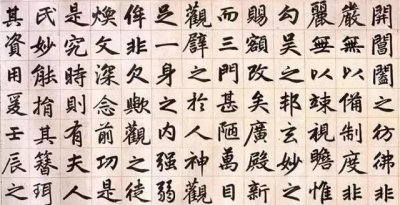 開閶闔之彷彿非
嚴無以備制度非
麗無以竦視瞻惟
勾吳之邦玄妙之
賜額改矣廣殿新
而三門甚陋萬目
觀譬之於人神觀
足一身之内强弱
侔非欠歟觀之徒
煥文深念前功是
是究時則有夫人
氏妙能捐其簪珥
其資用爰壬辰之